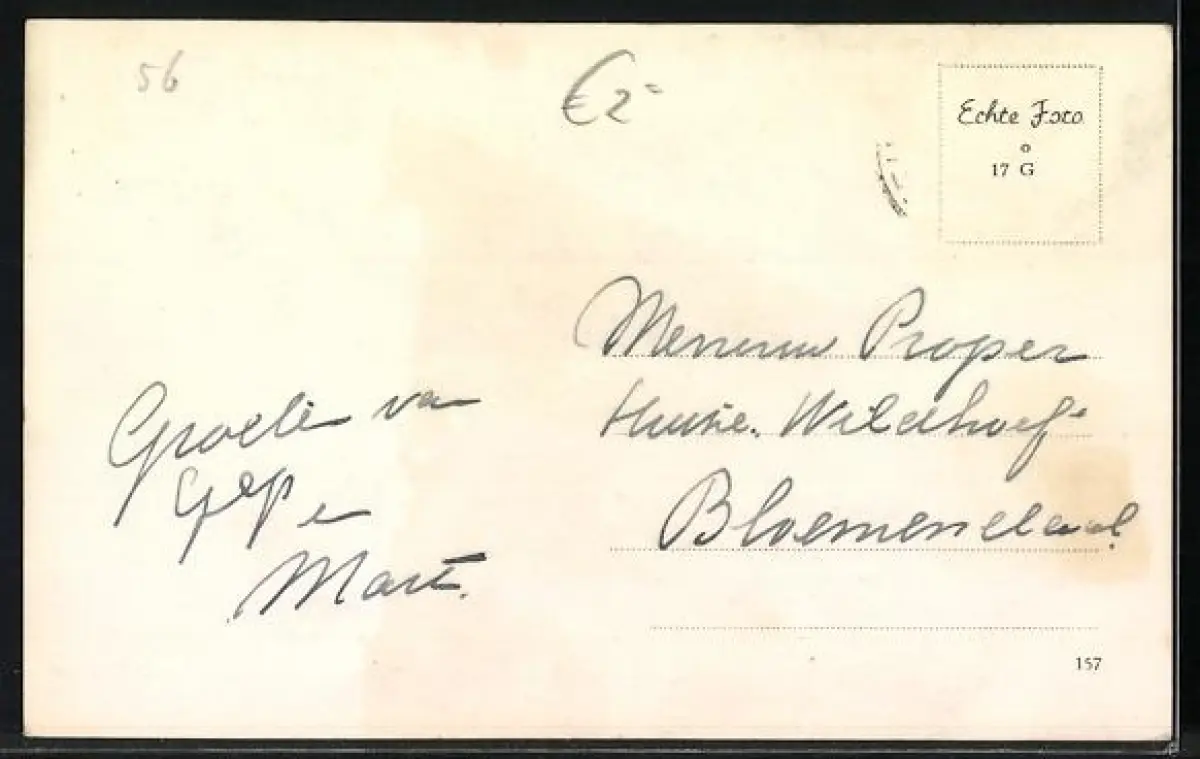 56
€ 2=
Echte Foto
17 G
Groeten van
Gep en
Mart.
Mevrouw Proper
Huize. Wildhoef
Bloemendaal.
157